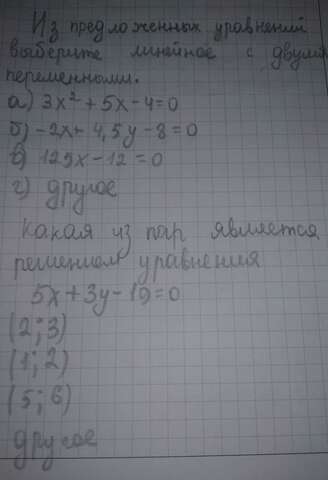 Из предложенных уравнений
выберите линейное с двумя
переменными.
а) 3x² + 5x - 4 = 0
б) -2x + 4,5y - 8 = 0
в) 125x - 12 = 0
г) другое
Какая из пар является
решением уравнения
5x + 3y - 19 = 0
(2; 3)
(1; 2)
(5; 6)
другое